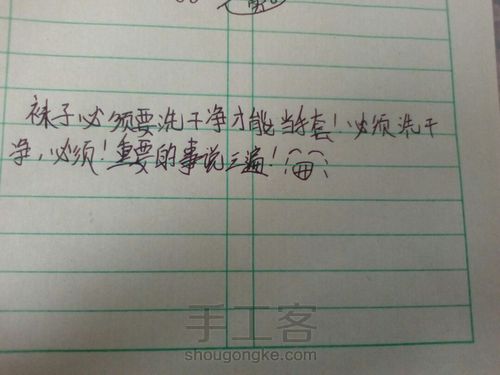 袜子必须要洗干净才能当手套！必须洗干
净，必须！重要的事说三遍！
手工客
shougongke.com